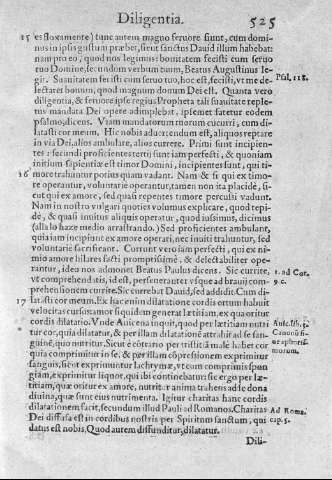 Diligentia. 525
15 es stoxamente) tunc autem magno feruore fiunt, cum domi-
nus in ipsis gustum præbet, sicut sanctus Dauid illum habebat:
nam pro eo, quod nos legimus: bonitatem fecisti cum seruo
tuo Domine, secundum verbum tuum, Beatus Augustinus le-
git. Suauitatem fecisti cum seruo tuo, hoc est, fecisti, vt me de- Psal. 118.
lectaret bonum, quod magnum donum Dei est. Quanta vero
diligentia, & feruore ipse regius Propheta tali suauitate reple-
tus mandata Dei opere adimplebat, ipsemet fatetur eodem
psalmo, dicens. Viam mandatorum tuorum cucurri, cum di-
latasti cor meum. Hic nobis aduertendum est, aliquos reptare
in via Dei, alios ambulare, alios currere. Primi sunt incipien-
tes: secundi proficientes: tertij sunt iam perfecti, & quoniam
initium sapientiæ est timor Domini, incipientes sunt, qui ti-
16 more trahuntur potius quam vadant. Nam & si qui ex timo-
re operantur, voluntarie operantur, tamen non ita placidè, si-
cut qui ex amore, sed quasi repentes timore percussi vadunt.
Nam in nostro vulgari quoties volumus explicare, quod tepi-
de, & quasi inuitus aliquis operatur, quod iussimus, dicimus
(alla lo haze medio arrastrando.) Sed proficientes ambulant,
quia iam incipiunt ex amore operari, nec inuiti trahuntur, sed
voluntarie sacrificant. Currunt vero iam perfecti, qui ex ni-
mio amore hilares fasti promptissimè, & delectabiliter ope-
rantur, ideo nos admonet Beatus Paulus dicens. Sic currite,
vt comprehendatis, id est, perseuerate vsque ad brauij com- 1. ad Cor.
prehensionem currite. Sic currebat Dauid, sed addidit. Cum di- 9. c.
17 latasti cor meum. Ex hac enim dilatatione cordis ortum habuit
velocitas cursus: amor si quidem generat lætitiam, ex qua oritur
cordis dilatatio. Vnde Auicena inquit, quod per lætitiam nutri
tur cor, quia dilatatur, & per illam dilationẽ attrahit ad se san-
guinẽ, quo nutritur. Sicut è cõtrario per tristitiã malè habet cor
quia comprimitur in se, & per illam cõpressionem exprimitur
sanguis, sicut exprimuntur lachrymæ, vt cum comprimis spon
giam, exprimitur liquor, qui ibi continebatur: sic ergo per læ-
titiam, quæ oritur ex amore, nutritur anima trahens ad se dona
diuina, quæ sunt eius nutrimenta. Igitur charitas hanc cordis
dilatationem facit, secundum illud Pauli ad Romanos. Charitas Ad Roma.
Dei diffusa est in cordibus nostris per Spiritum sanctum, qui cap. 5.
datus est nobis. Quod autem diffunditur, dilatatur.
Dili-